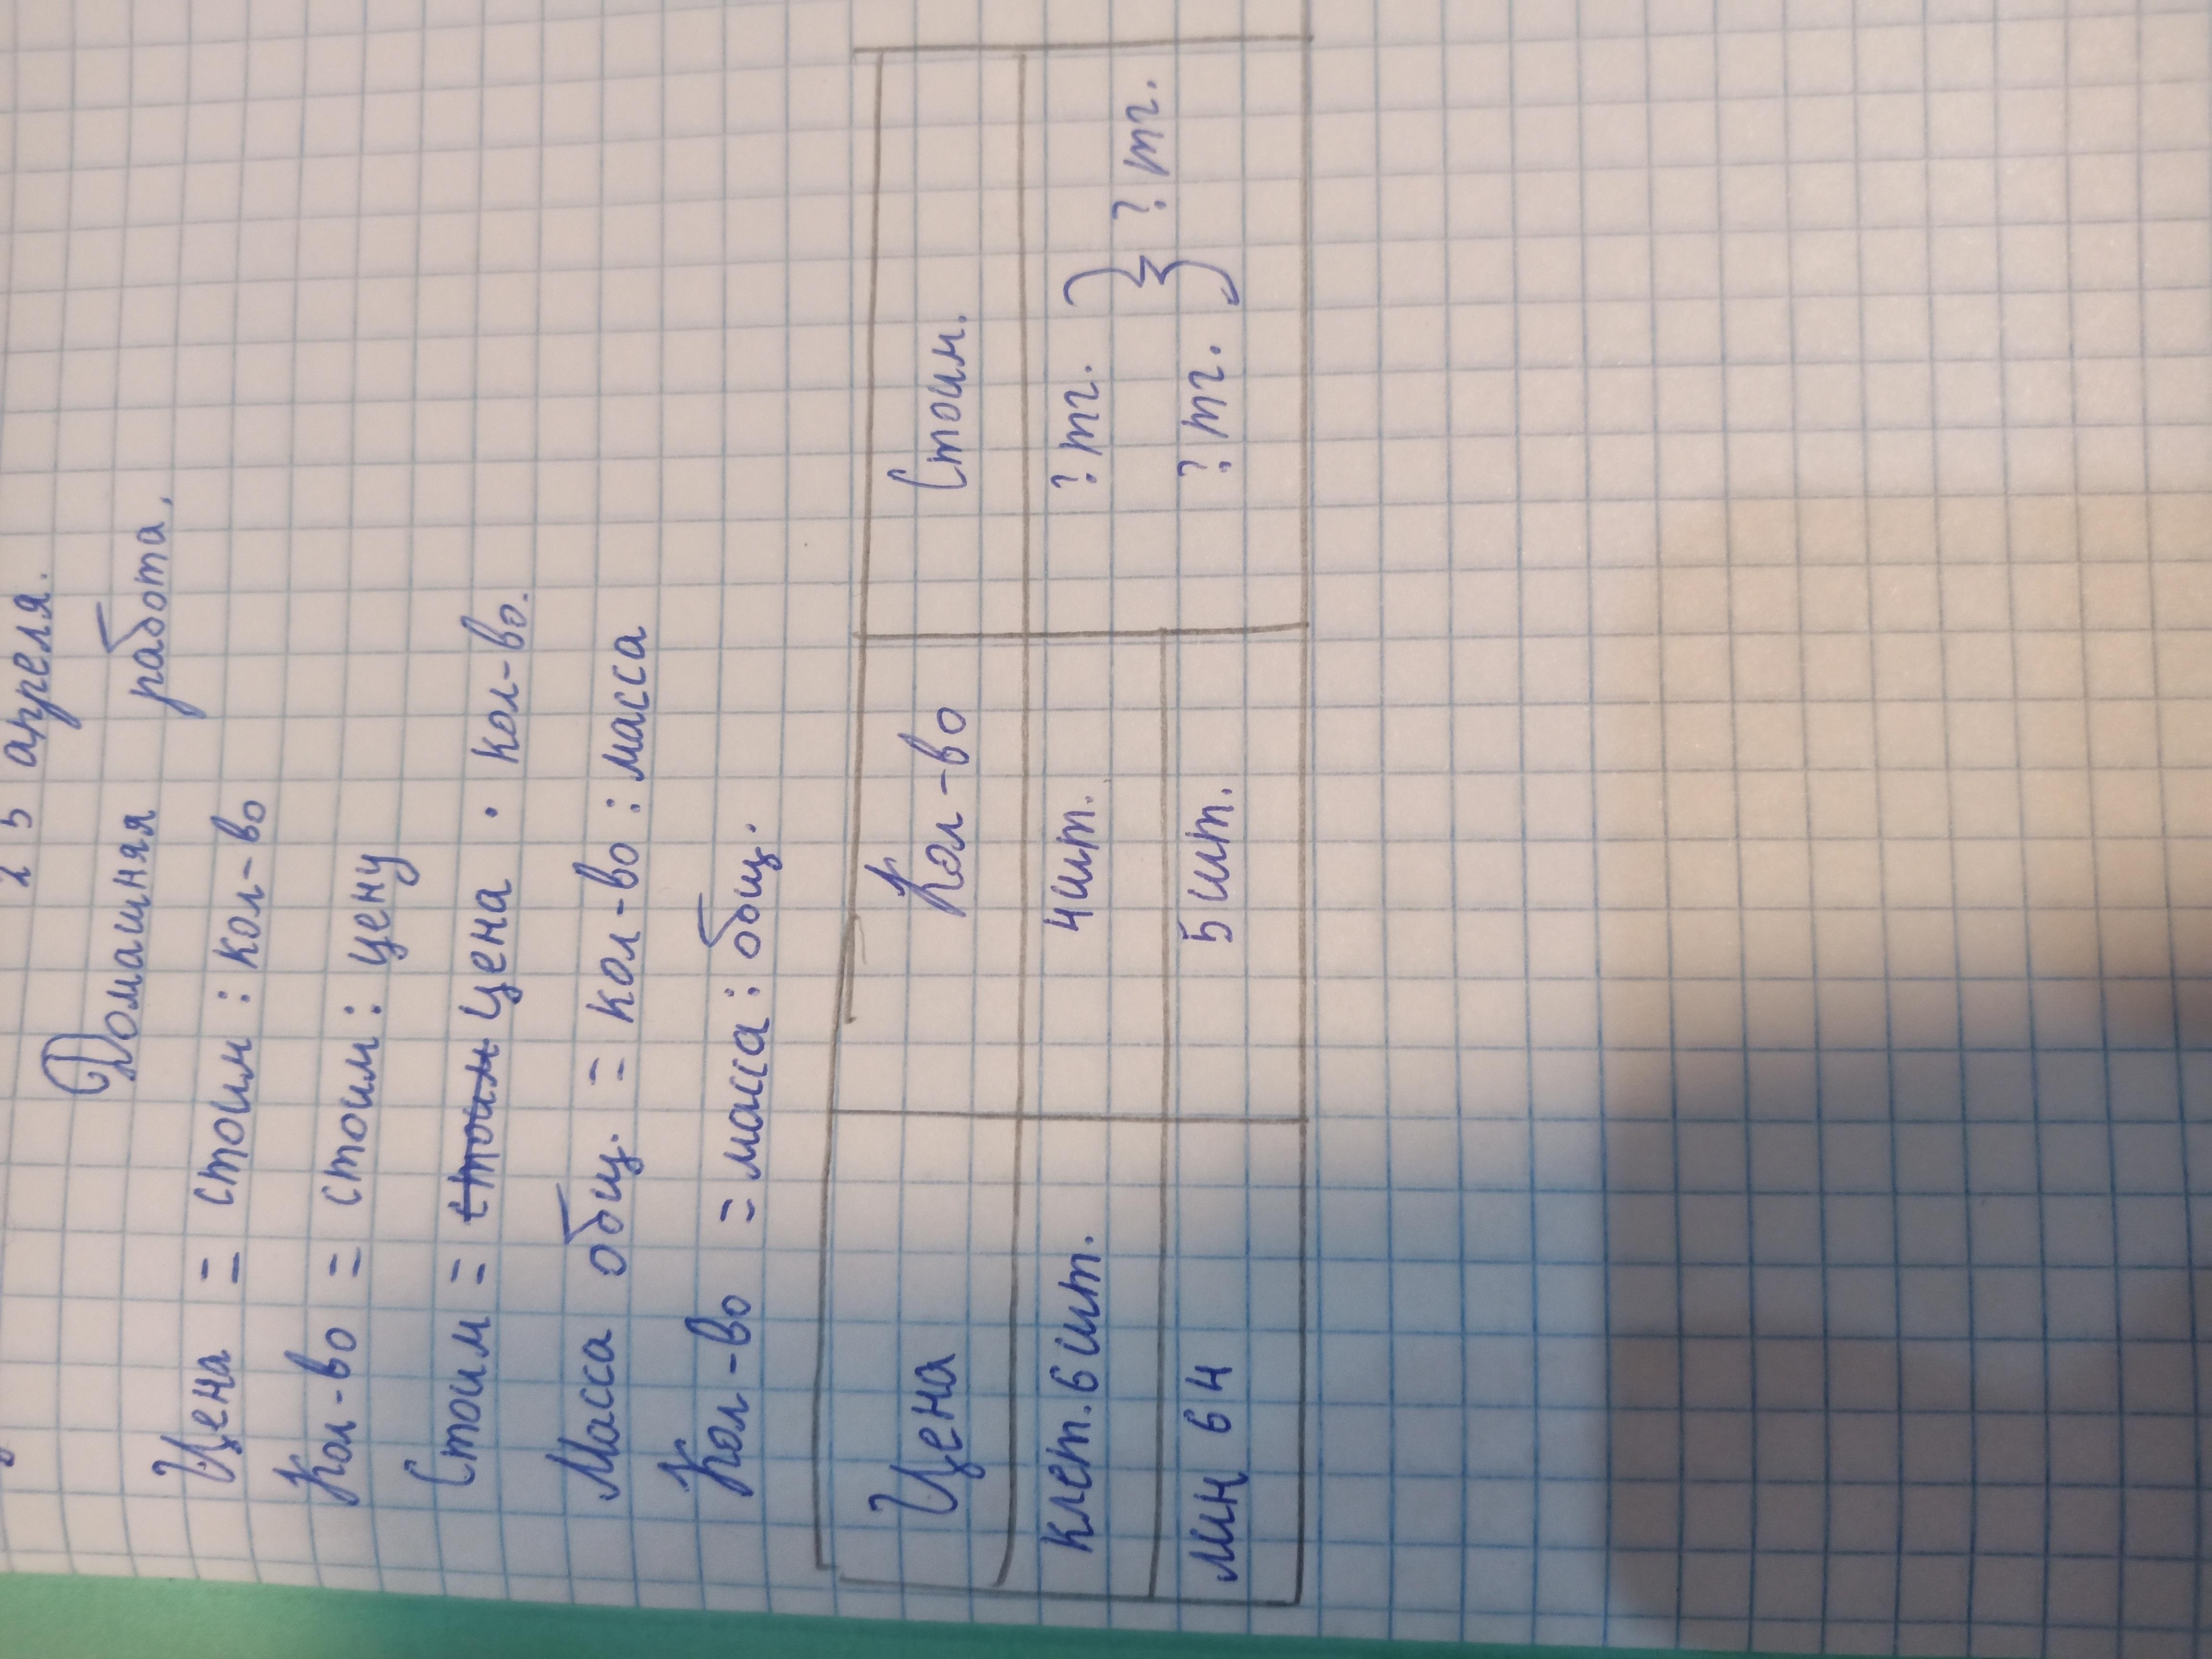 25 апреля.
Домашняя работа.
Цена = стоим : кол-во
Кол-во = стоим : цену
Стоим = стоим цена · кол-во.
Масса общ. = кол-во : масса
Кол-во = масса : общ.
Цена Кол-во Стоим.
клет. 6 шт. 4 шт. ? тг. } ? тг.
лин 6 4 5 шт. ? тг.